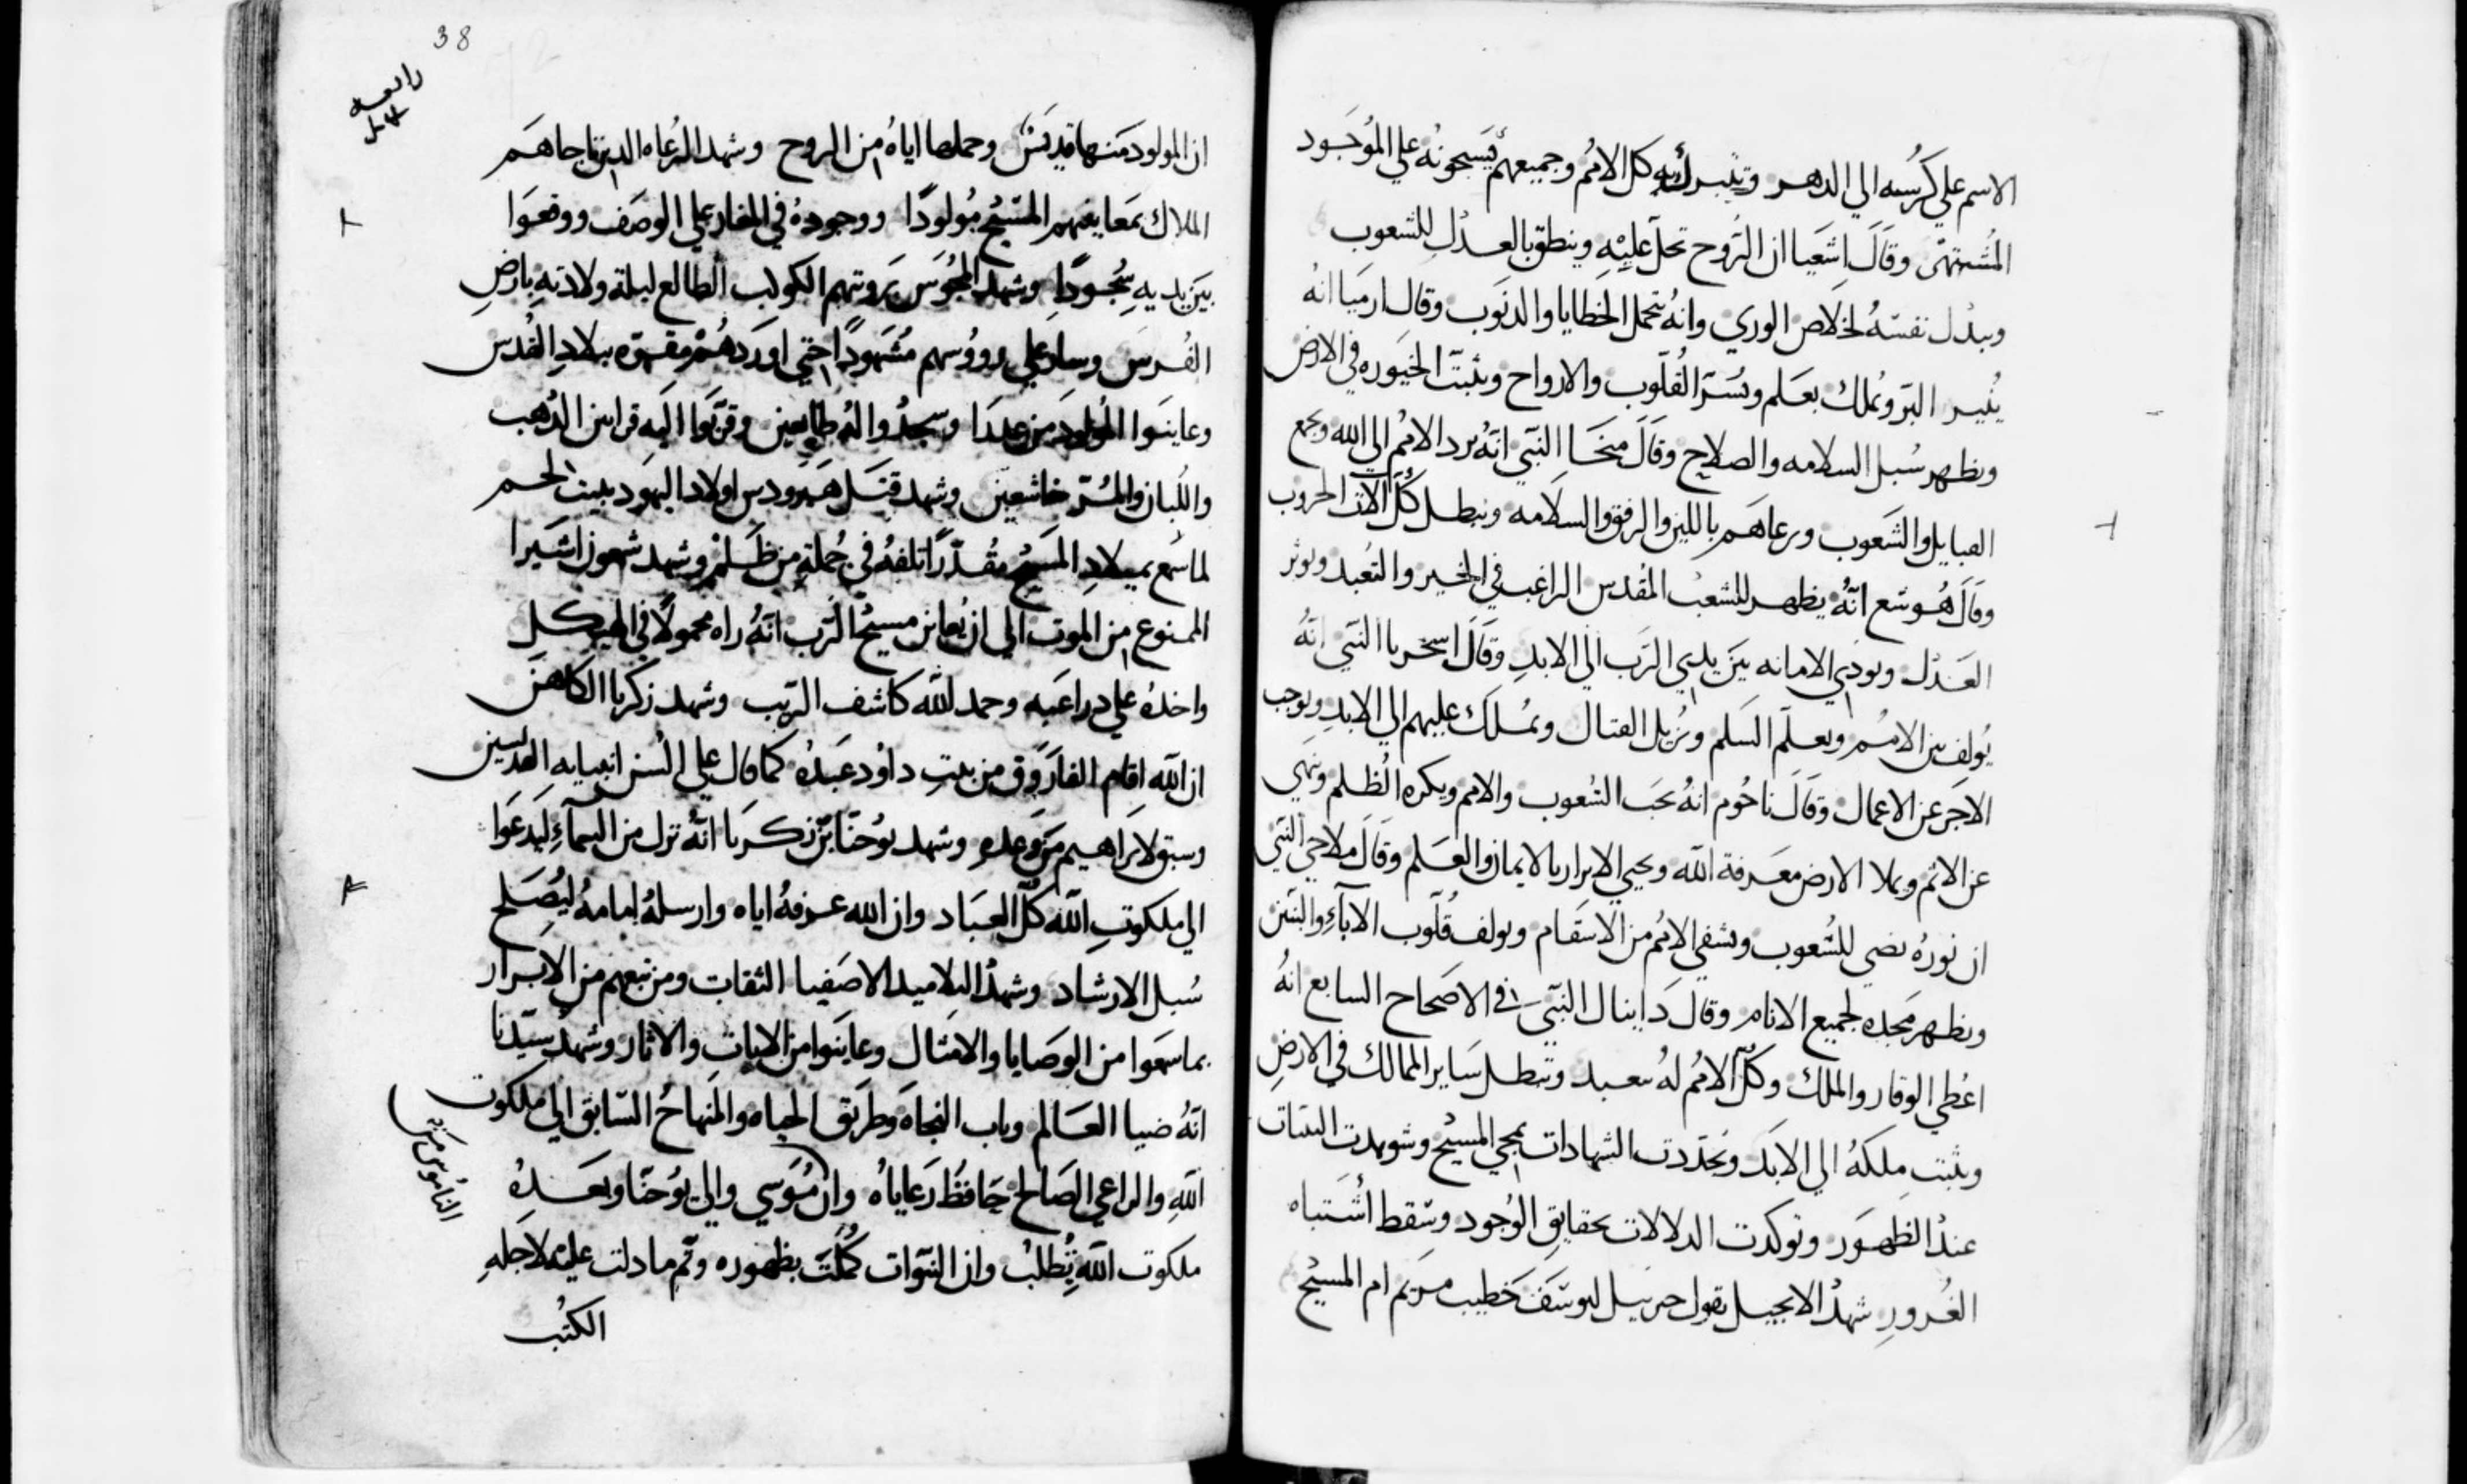 الاسم على كرسيه الي الدهر وتتبرك به كل الامم وجميعهم يسبحونه علي الموجود
المشتهى وقال اشعيا ان الروح تحل عليه وينطق بالعدل للشعوب
ويبدل نفسه لخلاص الوري وانه يتحمل الخطايا والدنوب وقال ارميا انه
ينير البر ويملك بعلم ويسر القلوب والارواح ويثبت الخيوره في الارض
ويظهر سبل السلامه والصلاح وقال ميخا النبي انه يرد الامم الي الله ويجمع
القبايل والشعوب ويرعاهم باللين والرفق والسلامه ويبطل كل الات الحروب
وقال هوشع انه يظهر للشعب المقدس الراغب في الخير والتعبد ويوثر
العدل ويودي الامانه بين يدي الرب الي الابد وقال اسخريا النبي انه
يولف بين الامم ويعلم السلم ويزيل القتال ويملك عليهم الي الابد ويوجب
الاجر عن الاعمال وقال ناحوم انه يحب الشعوب والامم ويكره الظلم وينهي
عن الاثم ويملا الارض معرفة الله ويحيي الابرار بالايمان والعلم وقال ملاخي النبي
ان نوره يضي للشعوب ويشفي الامم من الاسقام ويولف قلوب الاباء والبنين
ويظهر مجده لجميع الانام وقال داينال النبي في الاصحاح السابع انه
اعطي الوقار والملك وكل الامم له تعبد وتبطل ساير الممالك في الارض
ويثبت ملكه الي الابد وتجددت الشهادات بمجي المسيح وشوهدت البينات
عند الظهور وتوكدت الدلالات بحقايق الوجود وسقط اشتباه
الغرور شهد الانجيل بقول جبرييل ليوسف خطيب مريم ام المسيح
38
رابعة
ان المولود منها قديس وحملها اياه من الروح وشهد الرعاه الدين جاهم
الملاك بمعاينتهم المسيح مولودا ووجوده في المغار علي الوصف ووقعوا
بين يديه سجودا وشهد المجوس بروتهم الكوكب الطالع ليلة ولادته بارض
الفرس وسار علي رووسهم مشهودا حتي اوردهم مقره ببلاد القدس
وعاينوا المولود وسجدوا له طايعين وقربوا اليه قرابين الدهب
واللبان والمر خاشعين وشهد قتل هيرودس اولاد اليهود ببيت لحم
لما سمع بميلاد المسيح مقدرا تلفه في جملة من ظلم وشهد شمعون
الممنوع من الموت الي ان يعاين مسيح الرب انه راه محمولا في الهيكل
واخده علي دراعيه وحمد الله كاشف الريب وشهد زكريا الكاهن
ان الله اقام الفاروق من بيت داود عبده كما قال علي السن انبيايه القديسين
وسبق لابراهيم من وعده وشهد يوحنا بن زكريا انه نزل من السماء ليدعوا
الي ملكوت الله كل العباد وان الله عرفه اياه وارسله امامه ليصلح
سبل الارشاد وشهد التلاميد الاصفيا الثقات ومن تبعهم من الابرار
بما سمعوا من الوصايا والامثال وعاينوا من الايات والاثار وشهد سيدنا
انه ضيا العالم وباب النجاه وطريق الحياه والمنهاج السابق الي ملكوت
الله والراعي الصالح حافظ رعاياه وان موسي والي يوحنا وبعده
الناموس من
ملكوت الله تطلب وان النبوات كملت بظهوره وتم ما دلت عليه لاجله
الكتب